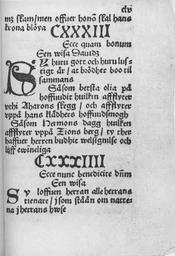 clv
mz skam/men offuer honō skal hans
krona bloya
CXXXIII
Ecce quam bonum
Sen wisa Dauidz
Sij huru gott och huru lus
tigt är/ at brödher boo til
sammans
Såsom betsta olia på
hoffuudit huilkin afflyter
vthi Aharons skegg/ och afflyter
vppå hans klädhers hoffuudsmogh
Såsom Hermons dagg huilken
afflyter vppå Zions berg/ ty ther
haffuer herren budhit welsignilse och
lijff ewinnerliga
CXXXIIII
Ecce nunc benedicite dñm
Sen wisa
Sy loffuen herran alle herrans
tienare/ j som stån om natte
na j herrans hwse